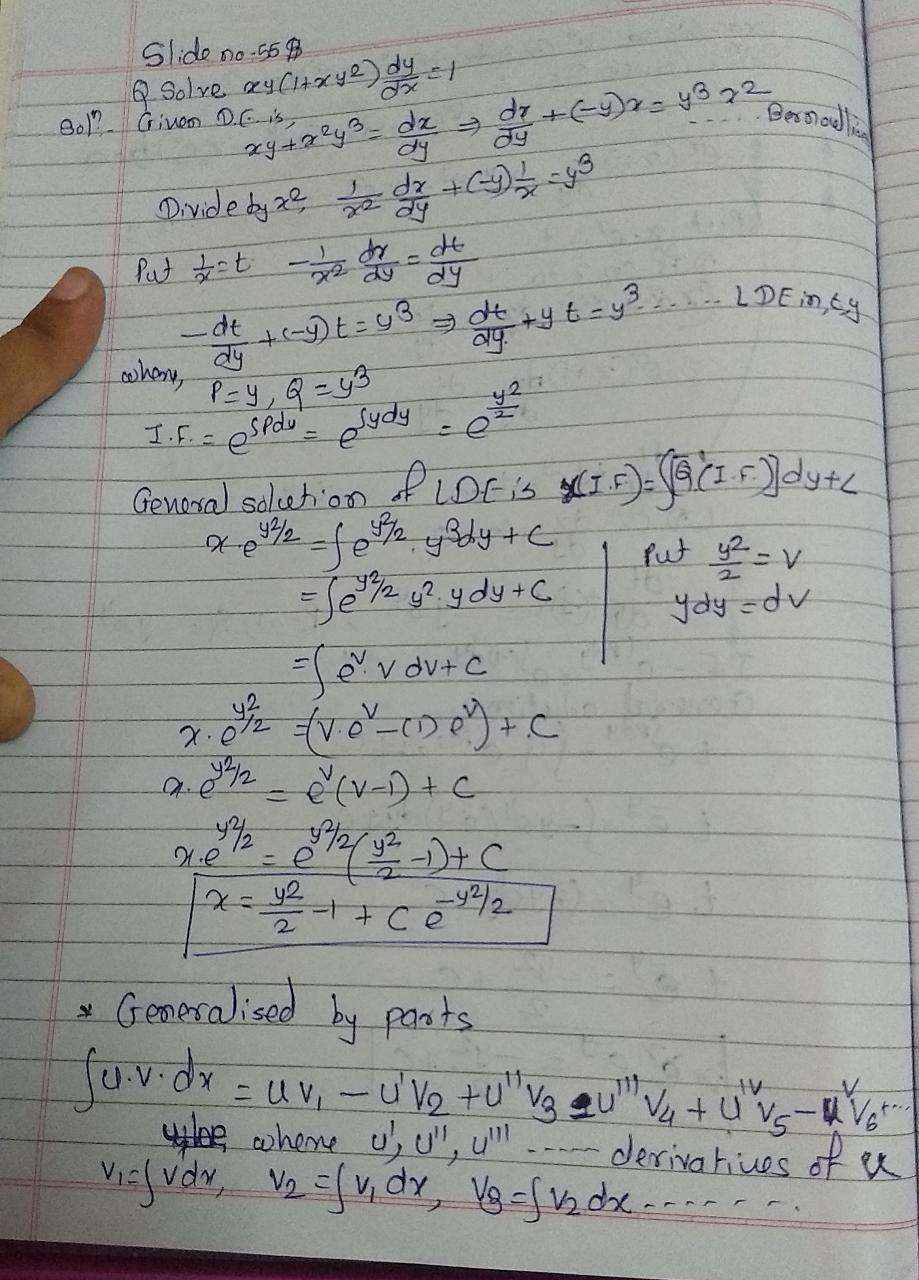 Slide no-55
Q Solve xy(1+xy²) dy/dx = 1
Solⁿ- Given D.E. is,
xy + x²y³ = dx/dy ⇒ dx/dy + (-y)x = y³x² ..... Bernoulli
Divide by x², 1/x² dx/dy + (-y) 1/x = y³
Put 1/x = t -1/x² dx/dy = dt/dy
-dt/dy + (-y)t = y³ ⇒ dt/dy + y t = y³ ...... LDE in t,y
where,
P = y, Q = y³
I.F. = e^∫Pdy = e^∫ydy = e^y²/2
General solution of LDE is x(I.F) = ∫[Q(I.F.)]dy+c
x·e^y²/2 = ∫e^y²/2 . y³dy + C
= ∫e^y²/2 y². y dy + C
Put y²/2 = v
ydy = dv
= ∫ e^v. v dv + C
x. e^y²/2 = (v.e^v - (1) e^v) + C
x. e^y²/2 = e^v(v-1) + C
x.e^y²/2 = e^y²/2 (y²/2 - 1) + C
x = y²/2 - 1 + C e^-y²/2
* Generalised by parts
∫u.v.dx = uv₁ - u'v₂ + u''v₃ - u'''v₄ + u^iv v₅ - u^v v₆ + ...
where u', u'', u''' ----- derivatives of u
v₁=∫vdx, v₂ = ∫v₁dx, v₃ = ∫v₂dx -------.